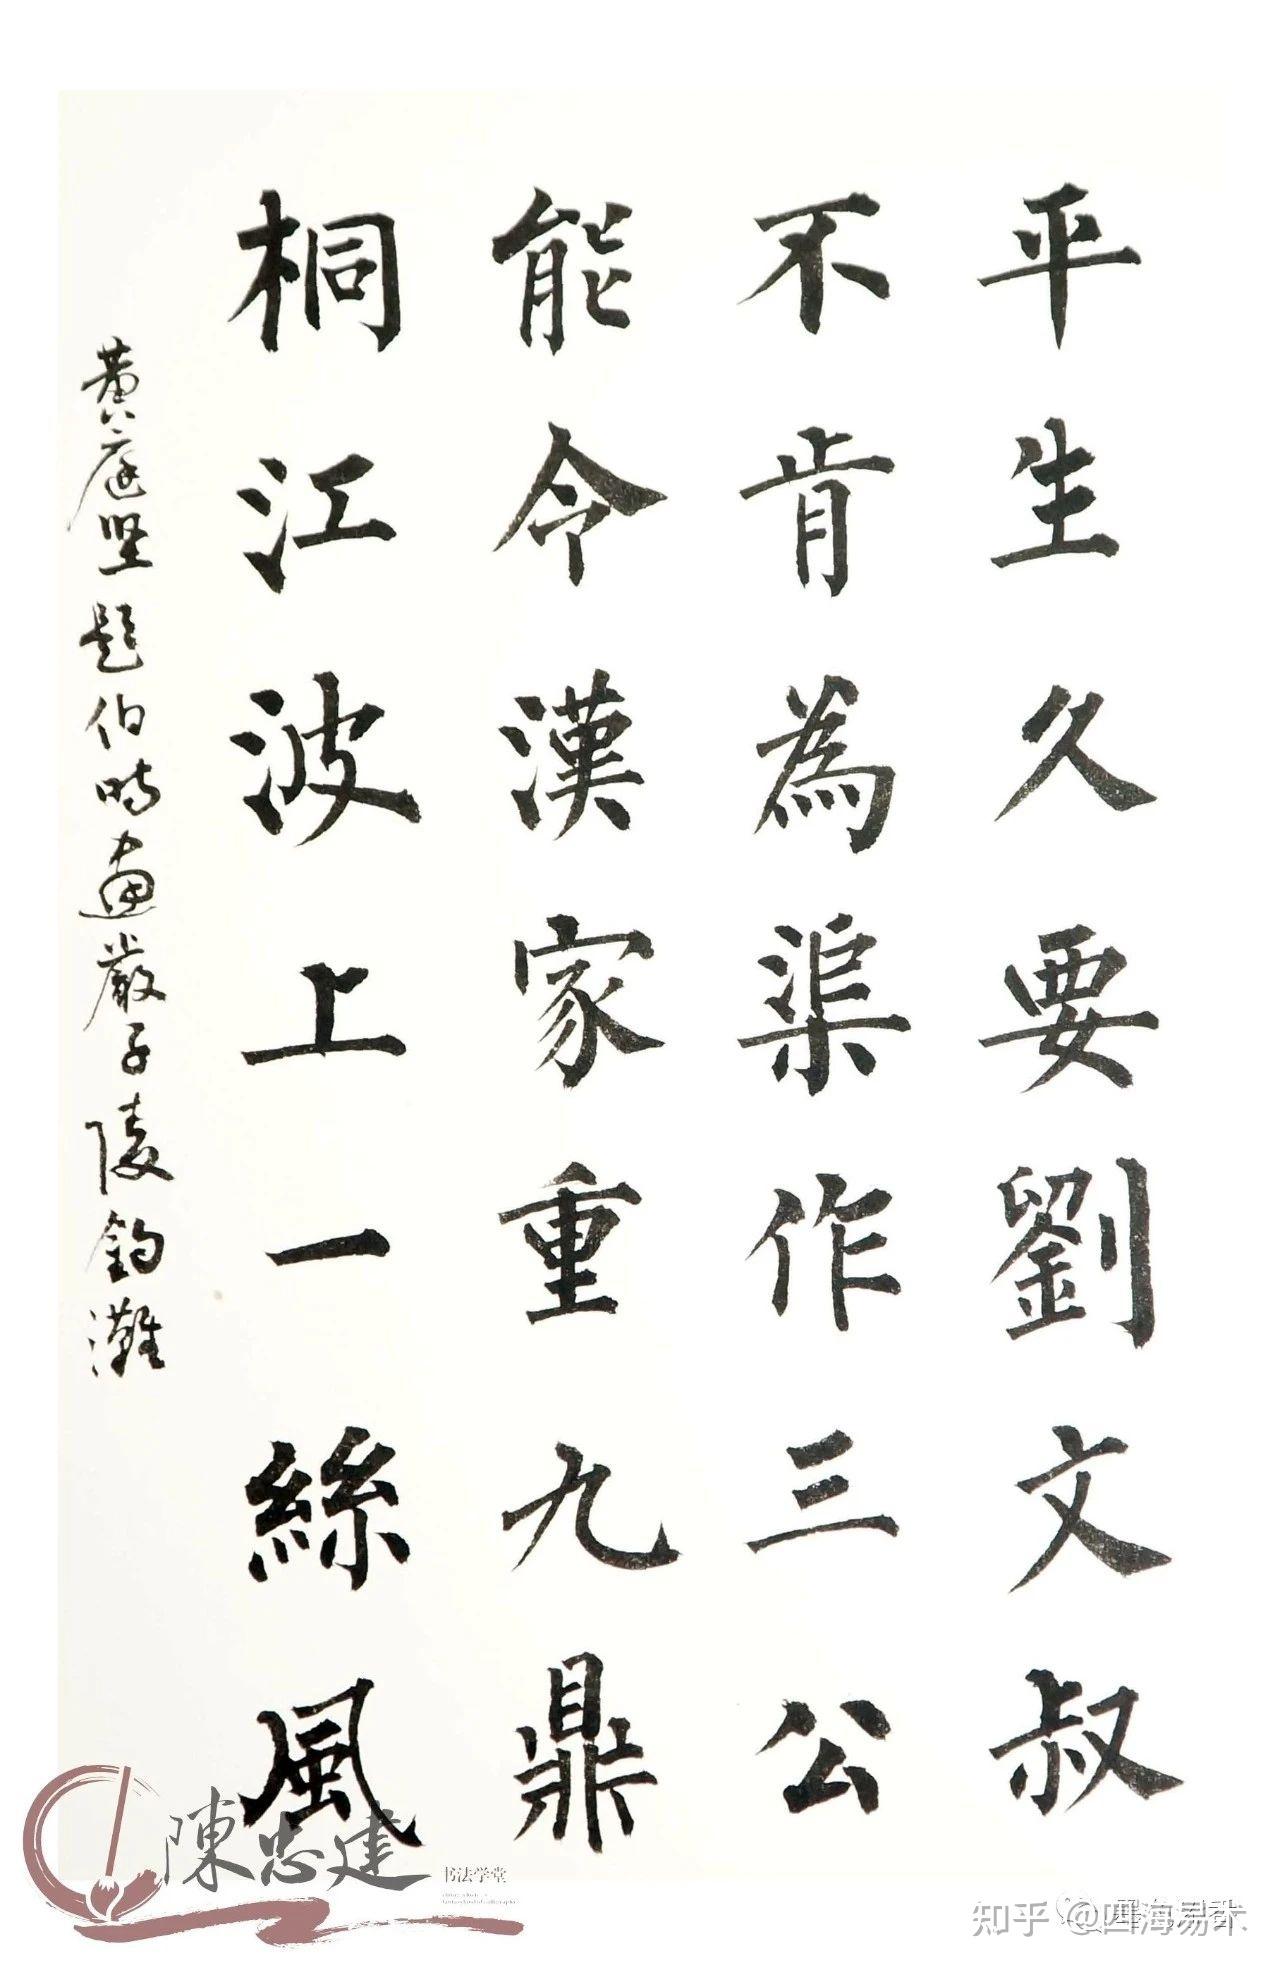 平生久要劉文叔
不肯為渠作三公
能令漢家重九鼎
桐江波上一絲風
黄庭坚題伯時畫嚴子陵釣灘
陳忠建
书法学堂
知乎 @四海易术